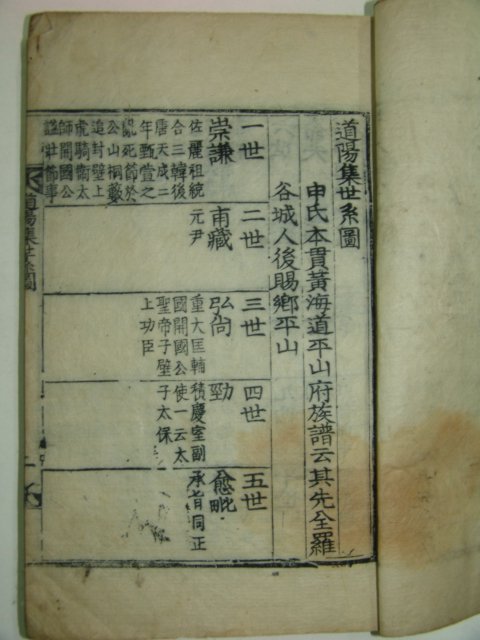 道陽集世系圖
申氏本貫黃海道平山府族譜云其先全羅
谷城人後賜鄉平山
一世
崇謙
佐麗祖統
合三韓後
唐天成二
年甄萱之
亂死節於
公山桐藪
追封壁上
虎騎衛太
師開國公
謚壯節事
二世
甫藏
元尹
三世
弘尚
重大匡輔
國開國公
聖帝子壁
上功臣
四世
勁
積慶室副
使一云太
子太保
五世
愈毗
承旨同正
道陽集世系圖
一